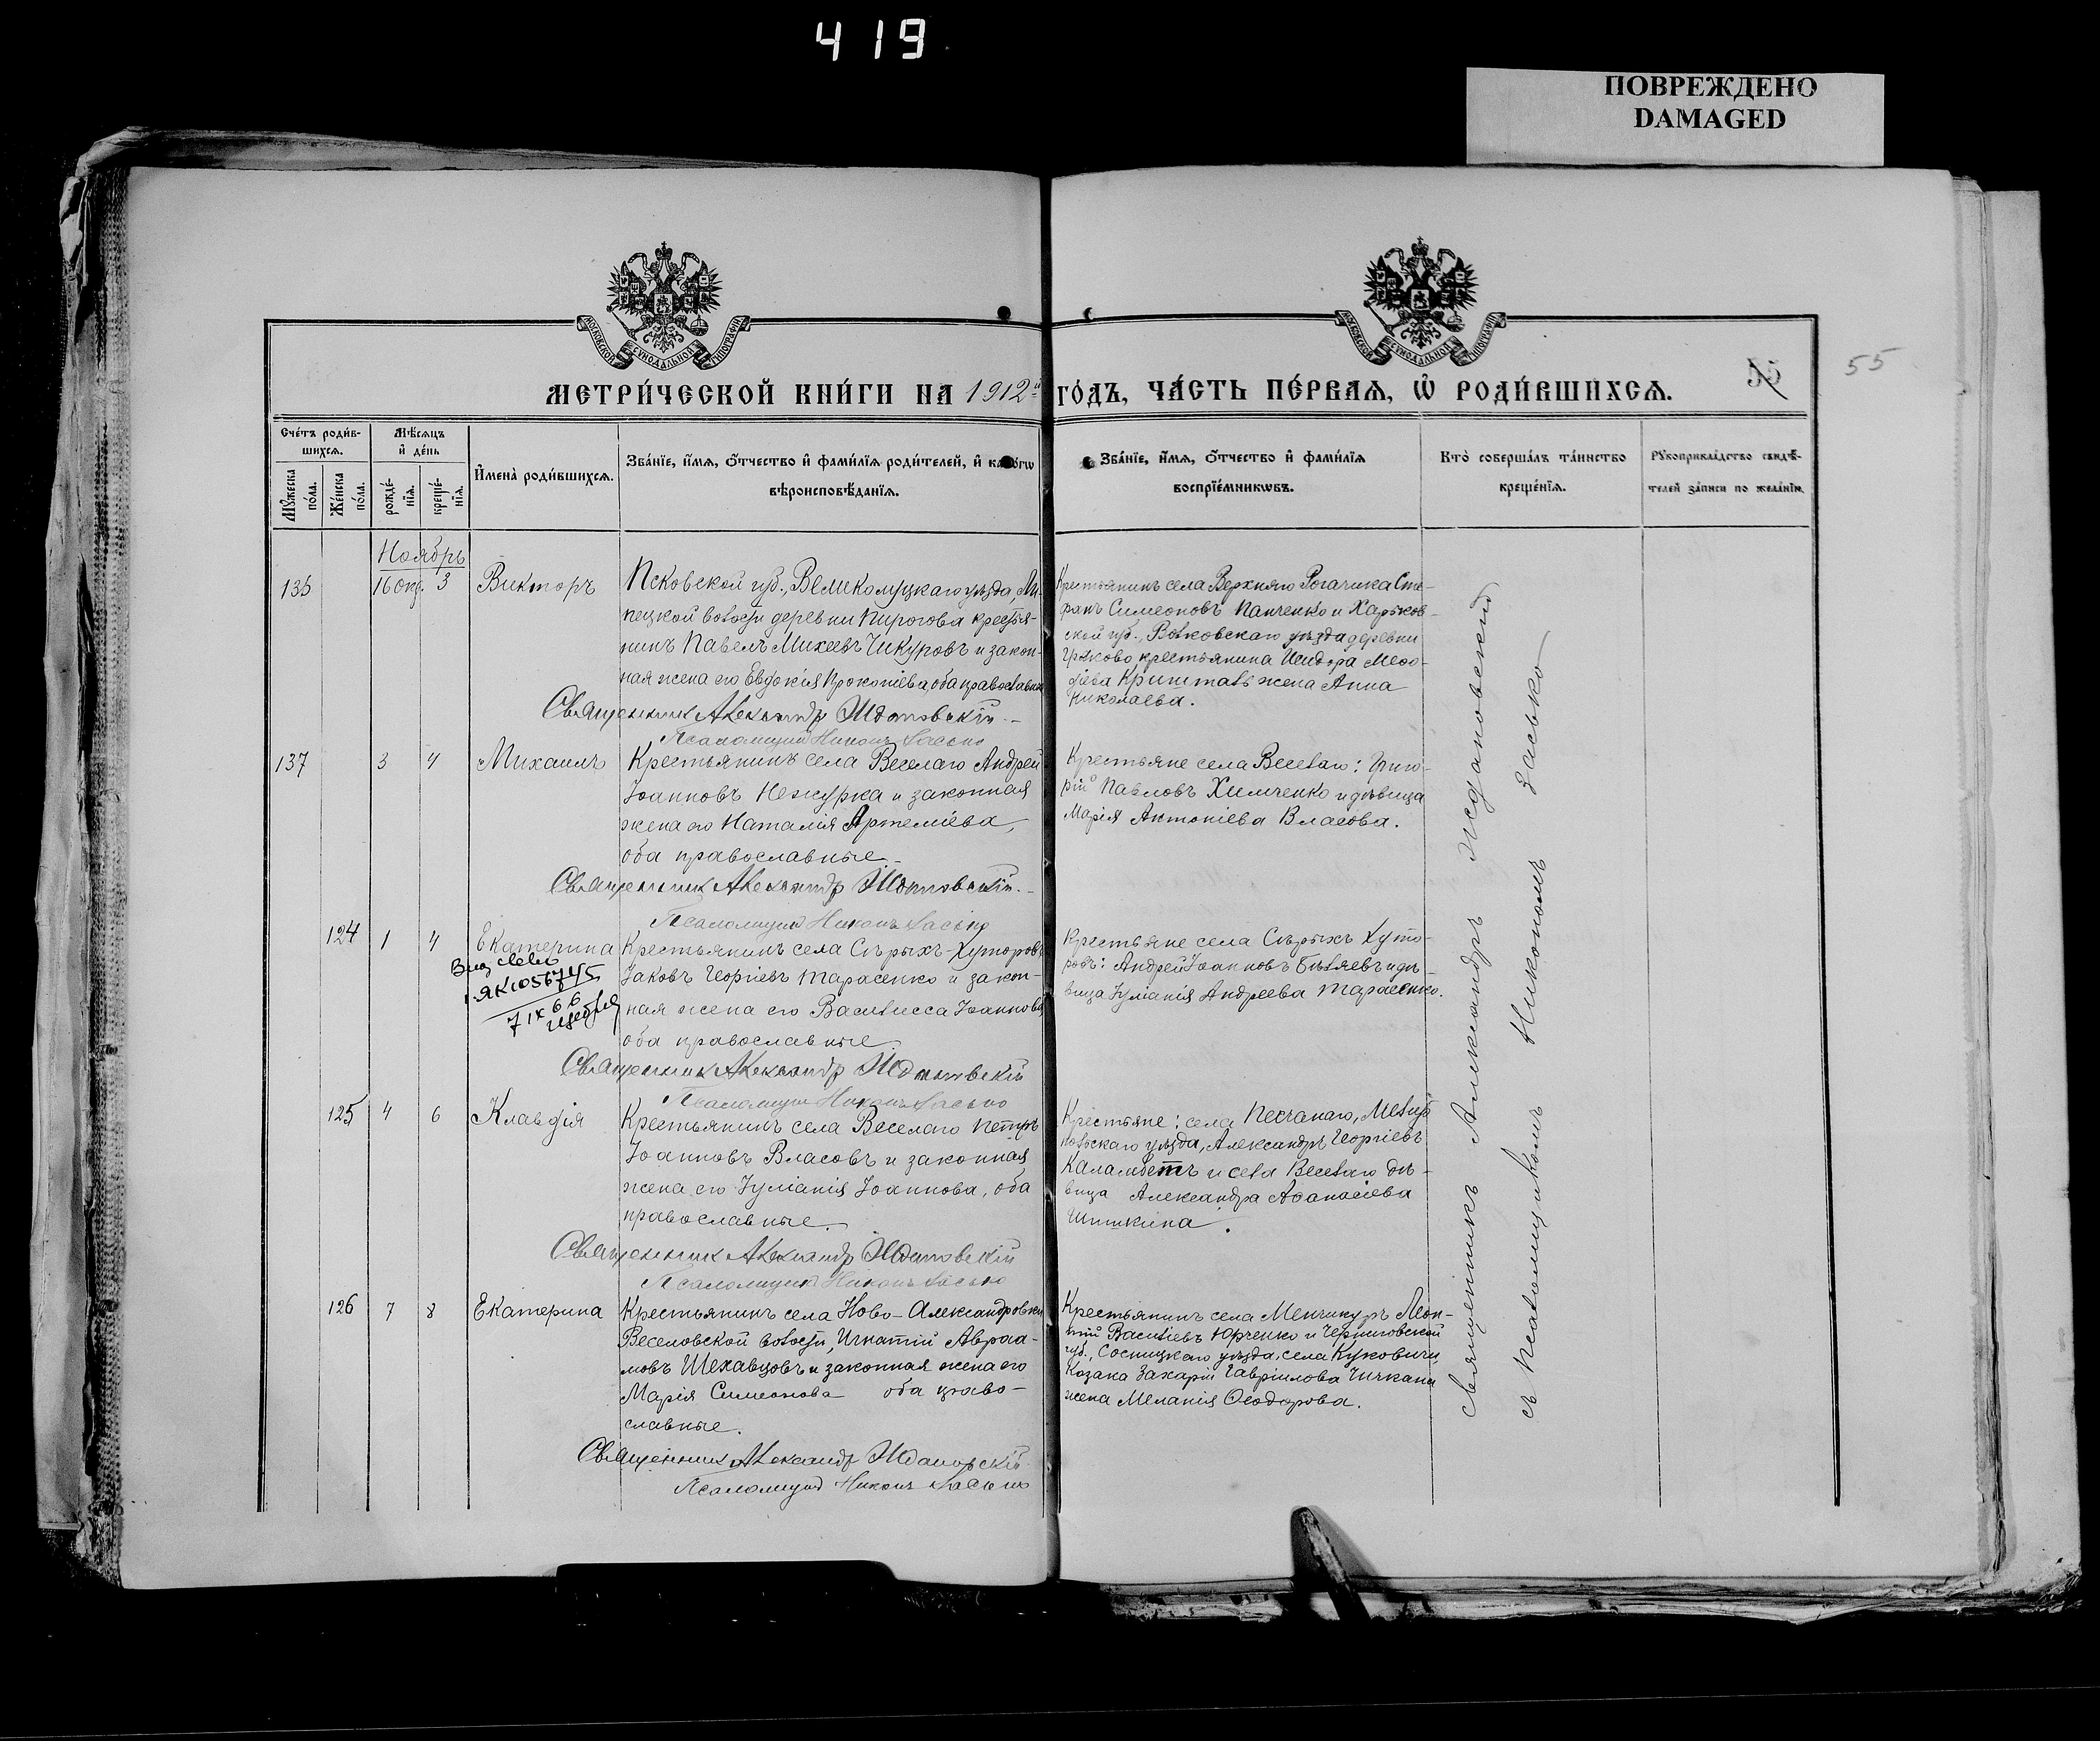 419
ПОВРЕЖДЕНО
DAMAGED
МОСКОВСКОЙ СѴНОДАЛЬНОЙ ТИПОГРАФІИ
МОСКОВСКОЙ СѴНОДАЛЬНОЙ ТИПОГРАФІИ
МЕТРИ́ЧЕСКОЙ КНИ́ГИ НА 1912й ГО́ДЪ, ЧА́СТЬ ПЕ́РВАЯ, Ѡ҆ РОДИ́ВШИХСЯ.
55
55
Сче́тъ роди́в-
шихся.
Мѣ́сяцъ
и҆ де́нь
Му́жеска
по́ла.
Же́нска
по́ла.
рожде́-
нїя.
креще́-
нїя.
И҆мена̀ роди́вшихся.
Зва́нїе, и҆́мя, ѻ҆́тчество и҆ фами́лїя роди́телей, и҆ како́гѡ
вѣроисповѣ́данїя.
Зва́нїе, и҆́мя, ѻ҆́тчество и҆ фами́лїя
воспрїе́мникѡвъ.
Кто̀ соверша́лъ та́инство
креще́нїя.
Рꙋкоприкла́дство свидѣ́-
телей за́писи по жела́нїю.
Ноябрь
135 16 окт. 3 Викторъ
Псковской губ., Великолуцкаго уѣзда, Ли-
пецкой волости деревни Пирогова крестья-
нинъ Павелъ Михеевъ Чикуровъ и закон-
ная жена его Евдокія Прокопіева, оба православные
Священникъ Александръ Ждановскій.
Псаломщикъ Никонъ Засько
Крестьянинъ села Верхняго Рогачика Сте-
фанъ Симеоновъ Панченко и Харьков-
ской губ., Волковскаго уѣзда деревни
крестьянина Исидора Меѳо-
діева Кришталь жена Анна
Николаева.
137 3 4 Михаилъ
Крестьянинъ села Веселаго Андрей
Іоанновъ Нежурка и законная
жена его Наталія Артеміева,
оба православные.
Священникъ Александръ Ждановскій.
Псаломщикъ Никонъ Засько
Крестьяне села Веселаго: Григо-
рій Павловъ Химченко и дѣвица
Марія Антоніева Власова.
124 1 4 Екатерина
ЯК 1056745
7 IX 66
Крестьянинъ села Сѣрыхъ-Хуторовъ
Іаковъ Георгіевъ Тарасенко и закон-
ная жена его Василисса Іоаннова
оба православные
Священникъ Александръ Ждановскій
Псаломщикъ Никонъ Засько
Крестьяне села Сѣрыхъ Хуто-
ровъ: Андрей Іоанновъ Бѣляевъ и дѣ-
вица Іуліанія Андреева Тарасенко.
125 4 6 Клавдія
Крестьянинъ села Веселаго Петръ
Іоанновъ Власовъ и законная
жена его Іуліанія Іоаннова, оба
православные.
Священникъ Александръ Ждановскій
Псаломщикъ Никонъ Засько
Крестьяне: села Песчанаго, Мелито
польскаго уѣзда, Александръ Георгіевъ
Каламбетъ и села Веселаго дѣ-
вица Александра Аѳанасіева
Шишкина.
126 7 8 Екатерина
Крестьянинъ села Ново-Александровки
Веселовской волости, Игнатій Авраа-
мовъ Шехавцовъ и законная жена его
Марія Симеонова оба право-
славные.
Священникъ Александръ Ждановскій
Псаломщикъ Никонъ Засько
Крестьянинъ села Менчикуръ Леон-
тій Василіевъ Юрченко и Черниговской
губ., Сосницкаго уѣзда, села Куковичи,
Козака Захарія Гавріилова Чичкана
жена Меланія Ѳеодорова.
Священникъ Александръ Ждановскій
съ Псаломщикомъ Никономъ Засько